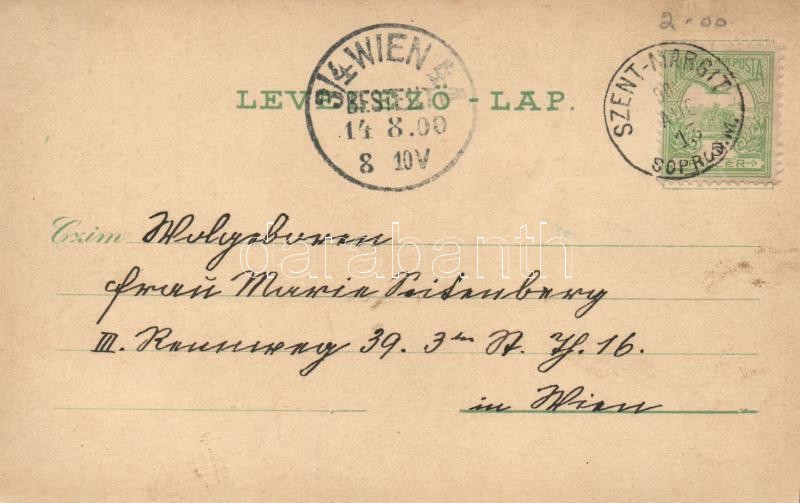 2.00
LEVELEZŐ-LAP.
3/4 WIEN 4
BESTELLT
14 8.00
8 10V
SZENT-MARGIT
SOPRON M.
POSTA
Czim Wolgeboren
frau Marie Seitenberg
III. Rennweg 39. 3ten St. Th. 16.
in Wien
darabanth